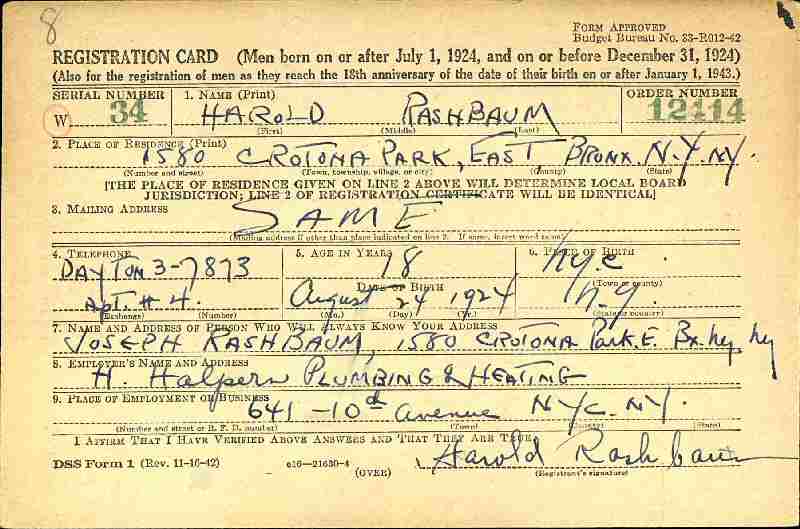 8
FORM APPROVED
Budget Bureau No. 33-R012-42
REGISTRATION CARD (Men born on or after July 1, 1924, and on or before December 31, 1924)
(Also for the registration of men as they reach the 18th anniversary of the date of their birth on or after January 1, 1943.)
SERIAL NUMBER 1. NAME (Print) ORDER NUMBER
W 34 HAROLD RASHBAUM 12414
(First) (Middle) (Last)
2. PLACE OF RESIDENCE (Print)
1580 CROTONA PARK, EAST BRONX. N.Y. NY.
(Number and street) (Town, township, village, or city) (County) (State)
[THE PLACE OF RESIDENCE GIVEN ON LINE 2 ABOVE WILL DETERMINE LOCAL BOARD
JURISDICTION; LINE 2 OF REGISTRATION CERTIFICATE WILL BE IDENTICAL]
3. MAILING ADDRESS
SAME
(Mailing address if other than place indicated on line 2. If same, insert word same)
4. TELEPHONE 5. AGE IN YEARS 6. PLACE OF BIRTH
DAYTON 3-7873 18 N.Y.C
DATE OF BIRTH (Town or county)
Apt. # 4. August 24 1924 N.Y.
(Exchange) (Number) (Mo.) (Day) (Yr.) (State or country)
7. NAME AND ADDRESS OF PERSON WHO WILL ALWAYS KNOW YOUR ADDRESS
JOSEPH RASHBAUM, 1580 CROTONA Park. E. Bx. Ny Ny
8. EMPLOYER'S NAME AND ADDRESS
H. Halpern PLUMBING & HEATING
9. PLACE OF EMPLOYMENT OR BUSINESS
641 - 10th Avenue NYC. NY.
(Number and street or R. F. D. number) (Town) (County) (State)
I AFFIRM THAT I HAVE VERIFIED ABOVE ANSWERS AND THAT THEY ARE TRUE.
DSS Form 1 (Rev. 11-16-42) c16-21630-4 Harold Rashbaum
(OVER) (Registrant's signature)